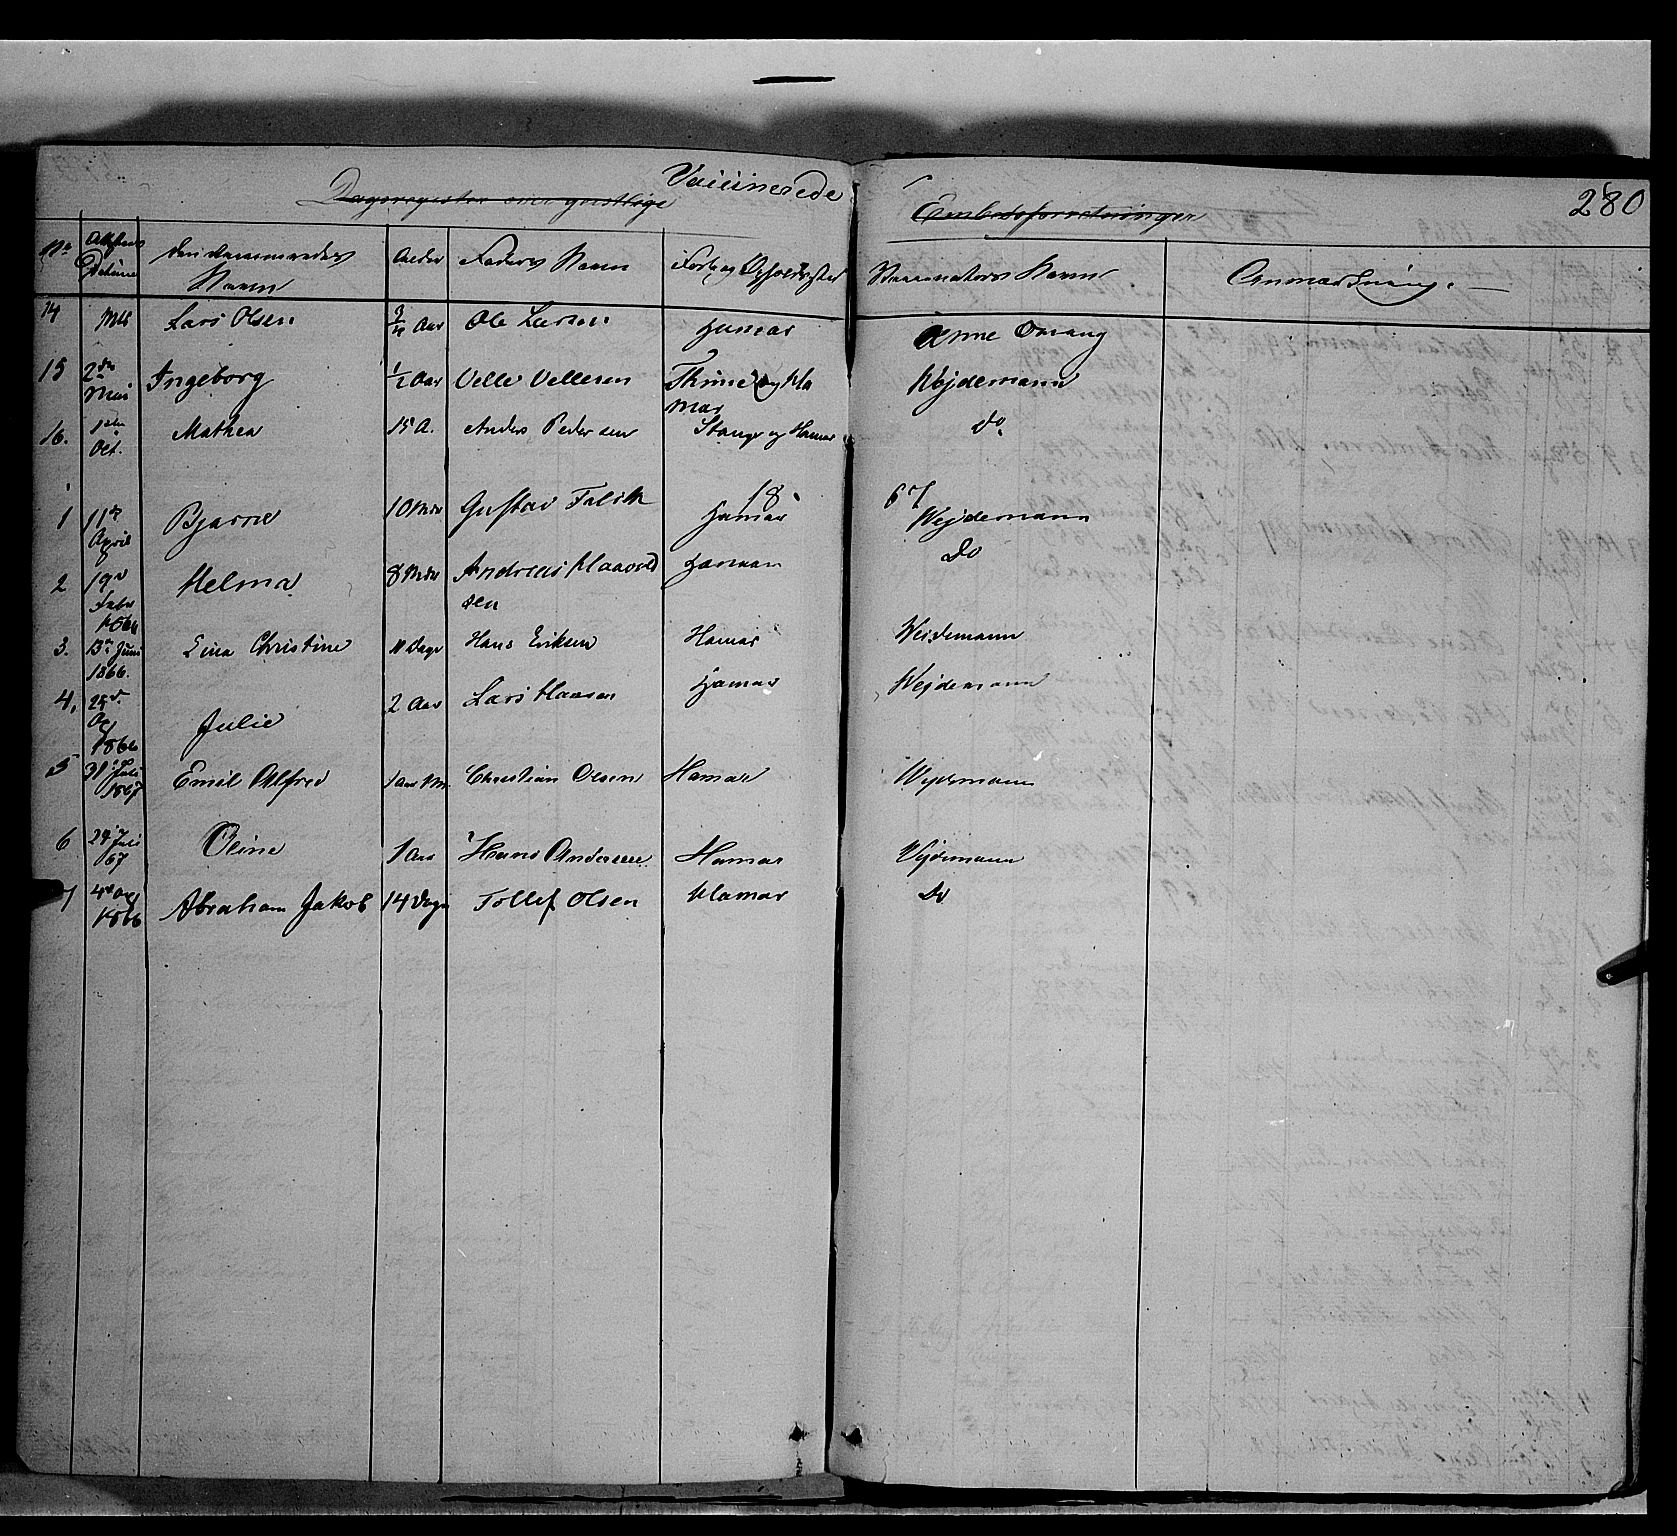 Vaccinerede 280
Dagsregister over geistlige Embedsforretninger
No Attestens Datum den Vaccineredes Navn Alder Faders Navn Føde og Opholdssted Vaccinators Navn Anmærkning.
14 Lars Olsen Aar Ole Larsen Hamar Anne Omang
15 2den Mai Ingeborg 1/2 Aar Velle Vellesen og Ha
mar Wejdemann
16. 1ste Oct. Mathea 15 A. Anders Pedersen Stange og Hamar do
1867
1 11te April Bjarne 10 Mdr Gustav Hamar Wejdemann
2 19d Febr Helma 8 Mdr Andreas
sen Hamar Do
3. 13de Juni 1866. Lina Christine 11 Dage Hans Eriksen Hamar Weidemann
4. 1866 Julie 2 Aar Lars Hansen Hamar Wejdemann
5 31 Juli 1867 Emil Alfred 1 Aar Christian Olsen Hamar Wejdemann
6 24 Juli 67 Oline 1 Aar Hans Andersen Hamar Vejdemann
7 1866 Abraham Jakob 14 Dage Tollef Olsen Hamar Do